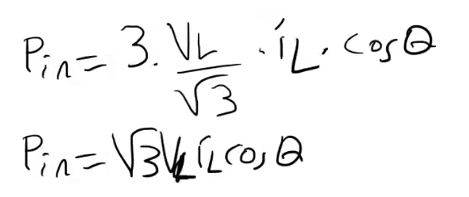 Pin = 3 · VL/√3 · iL · cosθ
Pin = √3 VL iL cosθ